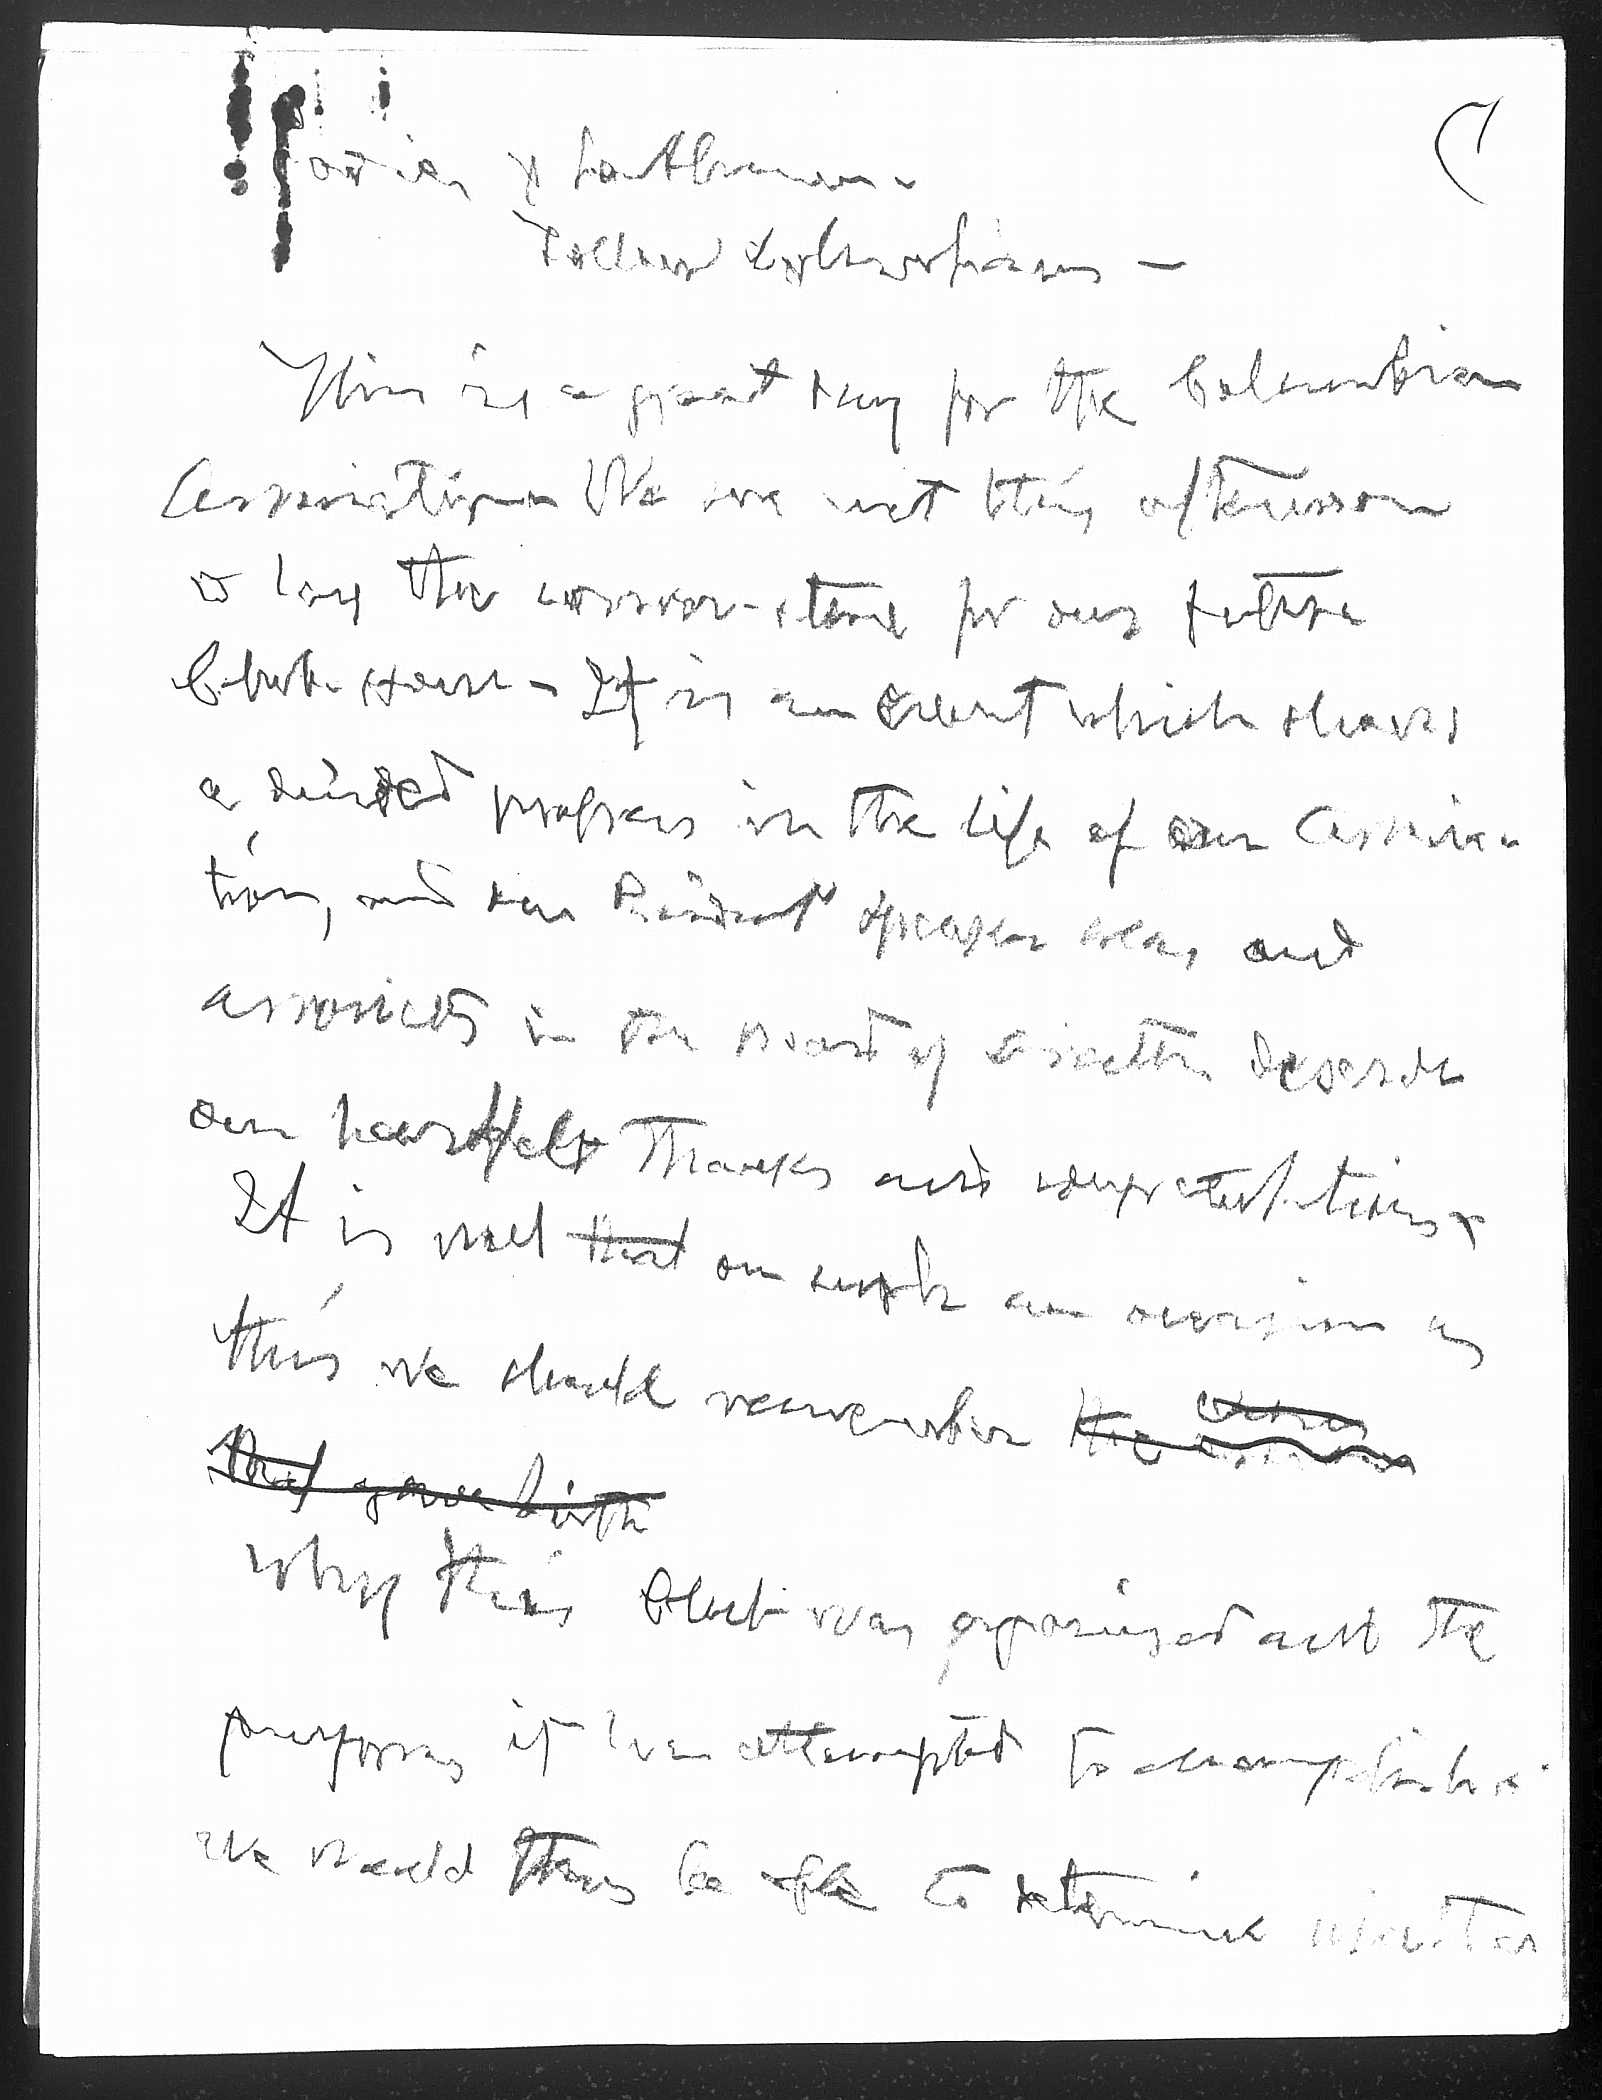 Ladies & Gentlemen -
Fellow Columbians -
This is a great day for the Columbian
Association We are met this afternoon
to lay the corner-stone for our future
Club-House - It is an event which shows
a decided progress in the life of our Associa-
tion, and our President and
associates in the Board of Directors deserve
our heartfelt Thanks and congratulations.
It is well that on such an occasion as
this we should remember the
that gave birth
why this Club was organized and the
purposes it has attempted to accomplish.
We would thus be able to determine whether